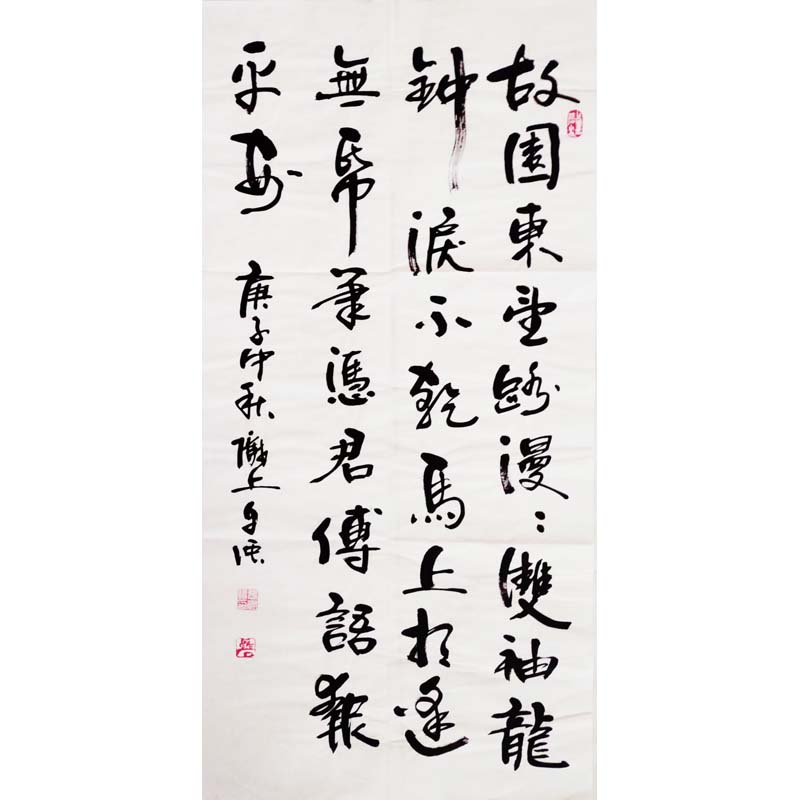 故園東望路漫〻雙袖龍
鈡淚不乾馬上相逢
無帋筆憑君傳語報
平安
庚子中秋隴上